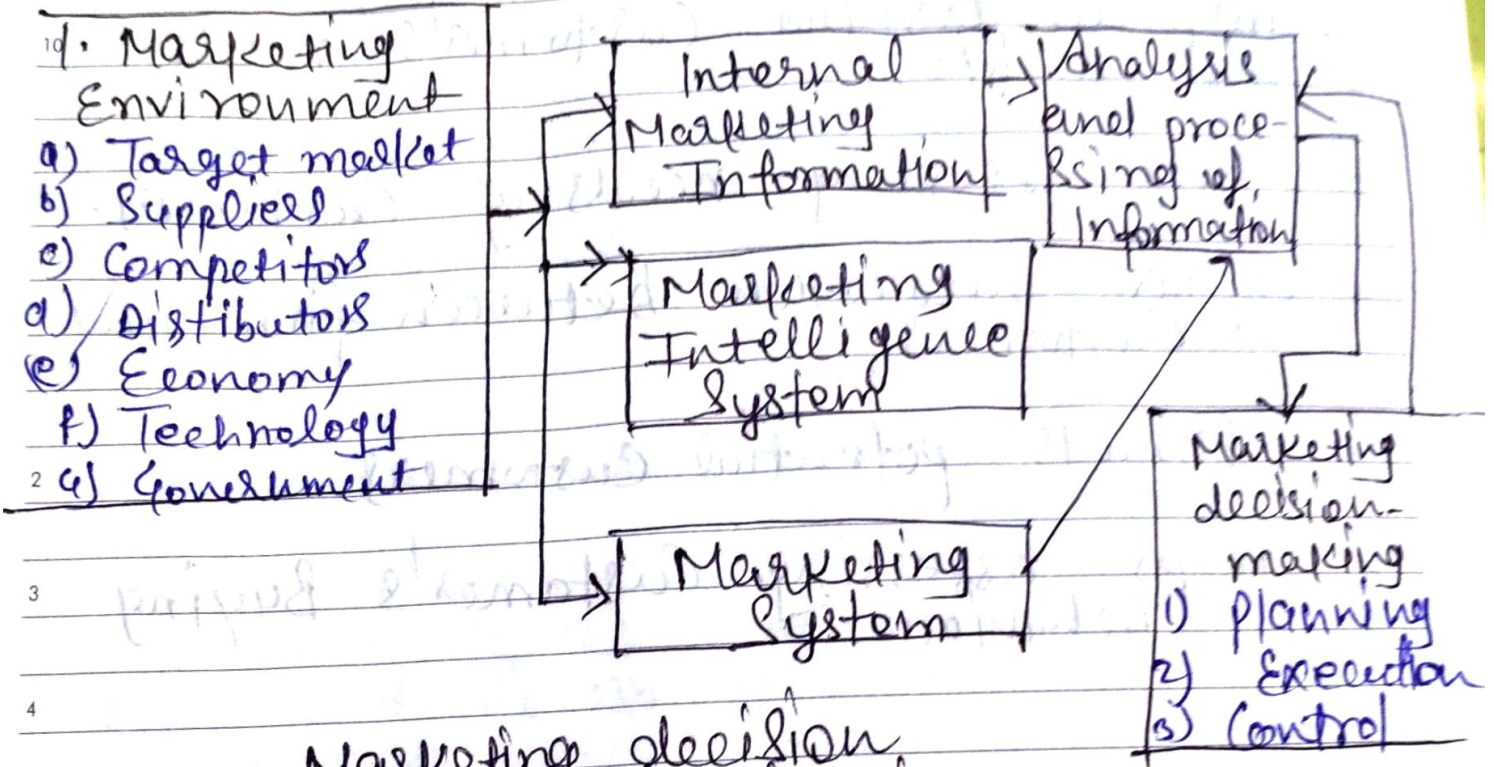 1. Marketing
Environment
a) Target market
b) Suppliers
c) Competitors
d) Distibutors
e) Economy
f) Technology
G) Government
Internal
Marketing
Information
Marketing
Intelligence
System
Marketing
System
Analysis
and proce-
ssing of
Information
Marketing
decision-
making
1) Planning
2) Execution
3) Control
2
3
4
Marketing decision